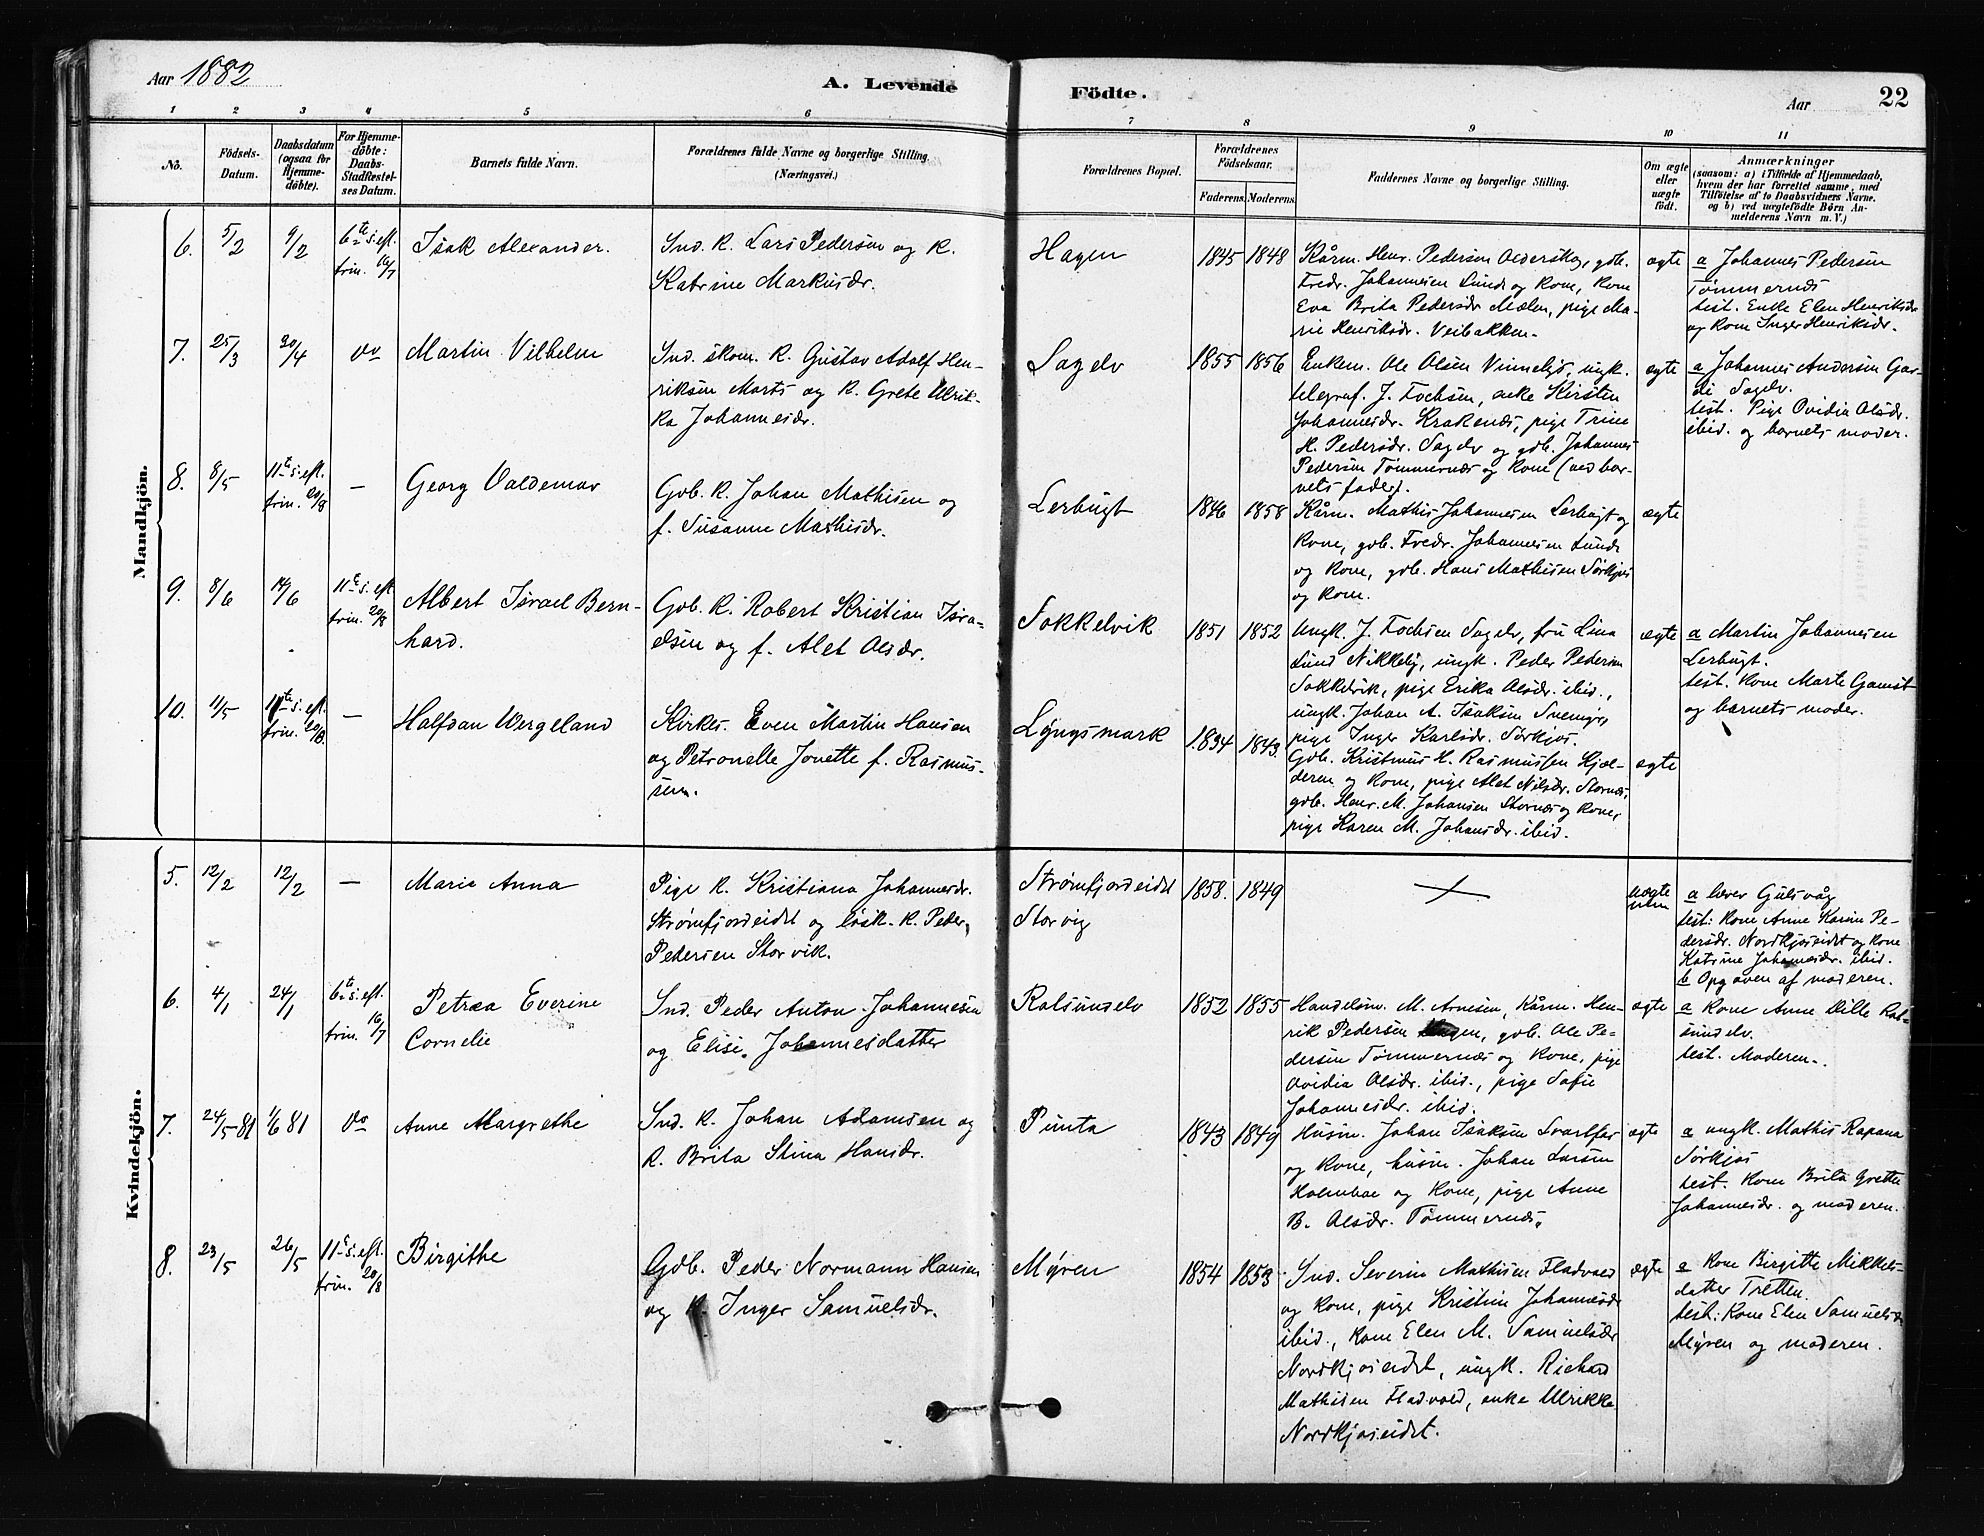 Aar 1882
A. Levende Fødte.
Aar
22
1 2 3 4 5 6 7 8 9 10 11
No.
Fødsels-
Datum.
Daabsdatum
(ogsaa for
Hjemme-
døbte).
For Hjemme-
døbte:
Daabs-
Stadfæstel-
ses Datum.
Barnets fulde Navn.
Forældrenes fulde Navne og borgerlige Stilling.
(Næringsvei.)
Forældrenes Bopæl.
Forældrenes
Fødselsaar.
Faderens. Moderens.
Faddernes Navne og borgerlige Stilling.
Om ægte
eller
uægte
født.
Anmærkninger
(saasom: a) i Tilfælde af Hjemmedaab,
hvem der har forrettet samme, med
Tilføielse af to Daabsvidners Navne.
og b) ved uægtefødte Børn An-
melderens Navn m. V.)
Mandkjön.
6. 5/2 9/2 6te s. eft.
trin. 16/7
Isak Alexander.
Ind. K. Lars Pedersen og K.
Katrine Markusdr.
Hagen
1845 1848
Kårm. Henr. Pedersen Oldersko, gdb.
Fredr. Johannesen Lund og Kone, Kone
Eva Brita Pedersdr. Mælen, pige Ma-
rie Henriksdr. Veibakken.
ægte
a Johannes Pedersen
Tømmernæs
test. Enke Elen Henriksdr.
og Kone Inger Henriksdr.
7. 25/3 30/4 do
Martin Vilhelm
Ind. skom. K. Gustav Adolf Hen-
riksen Marts og K. Grete Ulrik-
ka Johannesdr.
Sagelv
1855 1856
Enkem. Ole Olsen Vinnelys, ungk.
telegraf. J. Fochsen, enke Kirsten
Johannesdr. Krakenæs, pige Trine
H. Pedersdr. Sagelv og gdb. Johannes
Pedersen Tømmernæs og Kone (ved bar-
nets fader).
ægte
a Johannes Andersen Gar-
de Sagelv.
test. Pige Ovidia Olsdr.
ibid. og barnets moder.
8. 8/5 11te s. eft.
trin. 20/8
—
Georg Valdemar
Gdb. K. Johan Mathisen og
f. Susanne Mathisdr.
Lerbugt
1846 1858
Kårm. Mathis Johannesen Lerbugt og
Kone, gdb. Fredr. Johannesen Lund
og Kone, gdb. Hans Mathisen Sørkjos
og Kone.
ægte
9. 8/6 14/6 11te s. eft
trin. 20/8
Albert Israel Bern-
hard.
Gdb. K. Robert Kristian Isra-
elsen og f. Alet Olsdr.
Sokkelvik
1851 1852
Ungk. J. Fochsen Sagelv, fru Lina
Lund Nikkeby, ungk. Peder Pedersen
Sokkelvik, pige Erika Olsdr. ibid.,
ungk. Johan A. Isaksen
pige Inger Karlsdr. Sørkjos.
ægte
a Martin Johannesen
Lerbugt.
test. Kone Marte Gamst
og barnets moder.
10. 11/5 11te s. eft.
trin. 20/8.
—
Halfdan Wergeland
Kirkes. Even Martin Hansen
og Petronelle Jonette f. Rasmus-
sen.
Lyngsmark
1834 1843.
Gdb. Kristmus H. Rasmussen Kjel-
deren og Kone, pige Alet Nilsdr. Stornæs,
gdb. Henr. M. Johansen Stornæs og Kone,
pige Karen M. Johansdr. ibid.
ægte
Kvindekjön.
5. 12/2 12/2 —
Marie Anna
Pige K. Kristiana Johannesdr.
Strømfjordeidet og løsk. K. Peder
Pedersen Storvik.
Strømfjordeidet
Storvig
1858. 1849
uægte
a lærer Gulsvåg
test: Kone Anne Karin Pe-
dersdr. Nordkjoseidet og Kone
Katrine Johannesdr. ibid.
b Opgaven af moderen.
6. 4/1 24/1 6te s. eft.
trin. 16/7
Petrea Everine
Cornelie
Ind. Peder Anton Johannesen
og Elise Johannesdatter
Rotsundelv
1852 1855
Handelsm. M. Arnesen, Kårm. Hen-
rik Pedersen Hagen, gdb. Ole Pe-
dersen Tømmernæs og Kone, pige
Ovidia Olsdr. ibid., pige Sofie
Johannesdr. ibid.
ægte
a Kone Anne Dille Rot-
sundelv.
test. Moderen.
7. 24/5-81 1/6 81 do
Anne Margrethe
Ind. K. Johan Adamsen og
K. Brita Stina Hansdr.
Punta
1843 1849
Husm. Johan Isaksen Svartfos
og Kone, husm. Johan Larsen
Holmbae og Kone, pige Anne
B. Olsdr. Tømmernæs.
ægte
a ungk. Mathis Rapana
Sørkjos
test. Kone Brita Grethe
Johannesdr. og moderen.
8. 23/5 26/5 11te s. eft.
trin. 20/8
Birgithe
Gdb. Peder Normann Hansen
og K. Inger Samuelsdr.
Myren
1854 1853
Ind. Severin Mathisen Fladvold
og Kone, pige Kristine Johannesdr
ibid., Kone Elen M. Samuelsdr
Nordkjoseidet, ungk. Richard
Mathisen Fladvold, enke Ulrikke
Nordkjoseidet.
ægte
a Kone Birgitte Mikkels-
datter Tretten.
test: Kone Elen Samuelsdr
Myren og moderen.